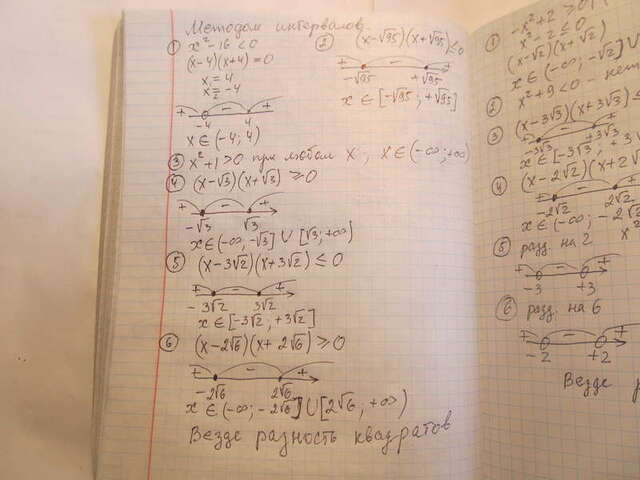 Методом интервалов.
① x² - 16 < 0
(x-4)(x+4) = 0
x = 4
x = -4
+ - +
-4 4
x ∈ (-4; 4)
② (x-√95)(x+√95) ≤ 0
+ - +
-√95 +√95
x ∈ [-√95; +√95]
③ x² + 1 > 0 при любом x, x ∈ (-∞; +∞)
④ (x-√3)(x+√3) ≥ 0
+ - +
-√3 √3
x ∈ (-∞; -√3] ∪ [√3; +∞)
⑤ (x-3√2)(x+3√2) ≤ 0
+ - +
-3√2 3√2
x ∈ [-3√2; +3√2]
⑥ (x-2√6)(x+2√6) ≥ 0
+ - +
-2√6 2√6
x ∈ (-∞; -2√6] ∪ [2√6; +∞)
Везде разность квадратов
① -x² + 2 > 0
x² - 2 ≤ 0
(x-√2)(x+√2)
x ∈ (-∞; -√2] ∪
② x² + 9 < 0 -
③ (x-3√3)(x+3√3) ≤
+ - +
-3√3 +3√3
x ∈ [-3√3; +3
④ (x-2√2)(x+2√
+ - +
-2√2 2√2
x ∈ (-∞; -2√2
⑤ разд. на 2 x²
+ - +
-3 +3
⑥ разд. на 6
+ - +
-2 +2
Везде